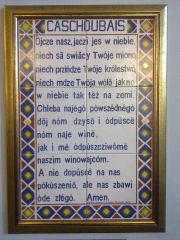 CASCHOUBAIS
Ojcze nasz, jaczi jes w niebie,
niech są swiący Twóje miono,
niech przińdze Twóje królestwò,
niech mdze Twòja wòlô jakno
w niebie tak téż na zemi.
Chleba najégò pòwszédnégò
dôj nóm dzysô i òdpùscë
nóm naje winë,
jak i më òdpùszcziwómë
naszim winowajcóm.
A nie dopùscë na nas
pòkùszeniô, ale nas zbawi
òde złégò. Amen.